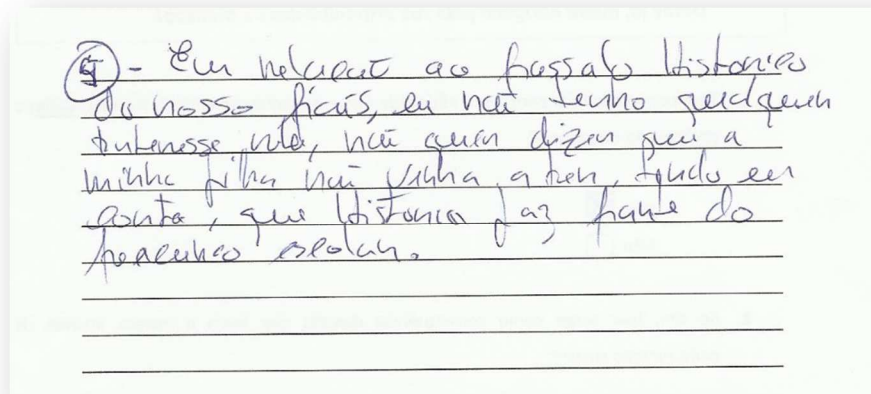 5 - Em relação ao passado Historico
do nosso País, eu não tenho qualquer
interesse nele, não quer dizer que a
minha filha não venha a ter, tendo em
conta, que Historia faz parte do
percurso escolar.